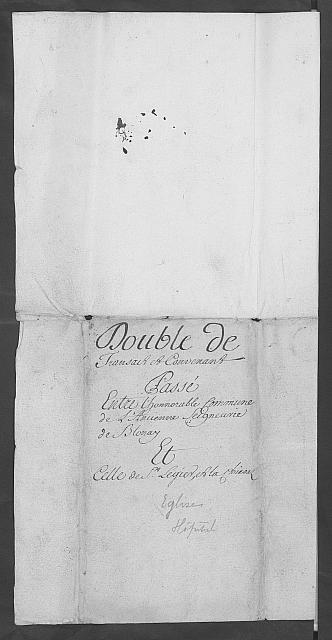 Double de
Transact et Convenant
Passé
Entre l'honnorable Commune
de L'Ancienne Seigneurie
de Blonay
Et
Celle de St. Legier, et la Chiesaz
Eglises
Hôpital